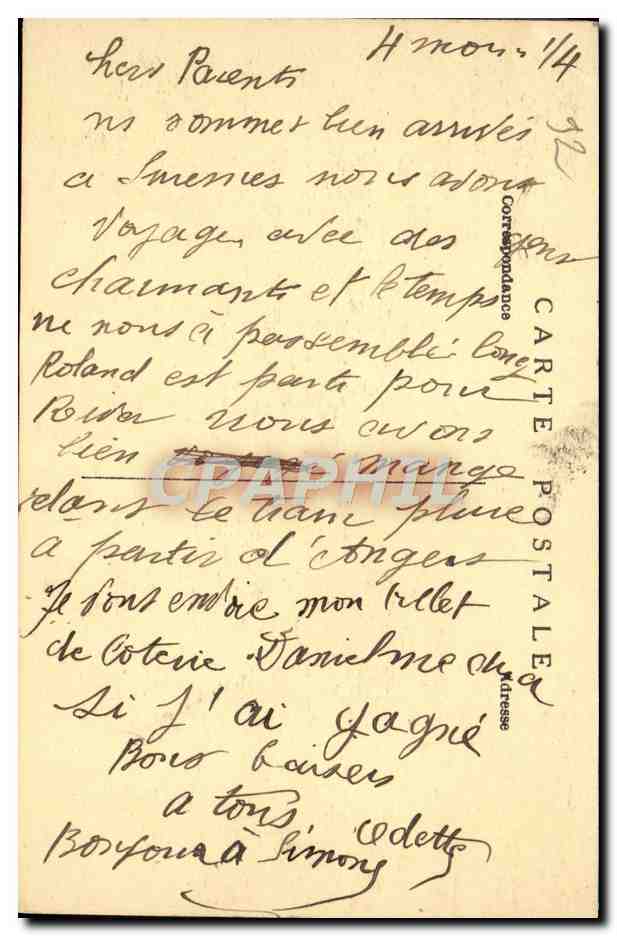 4 mois 1/4
92
hers Parents
ns sommes bien arrivés
a Suresnes nous avons
voyage avec des gens
charmants et le temps
ne nous à pas semblé long
Roland est parti pour
nous avons
bien mangé
dans le train pluie
à partir d'Angers
Je vous envoie mon billet
de loterie Daniel me dira
si j'ai gagné
Bons baisers
a tous
Odette
Bonjour à Simone
CARTE POSTALE
Correspondance
Adresse
CPAPHIL